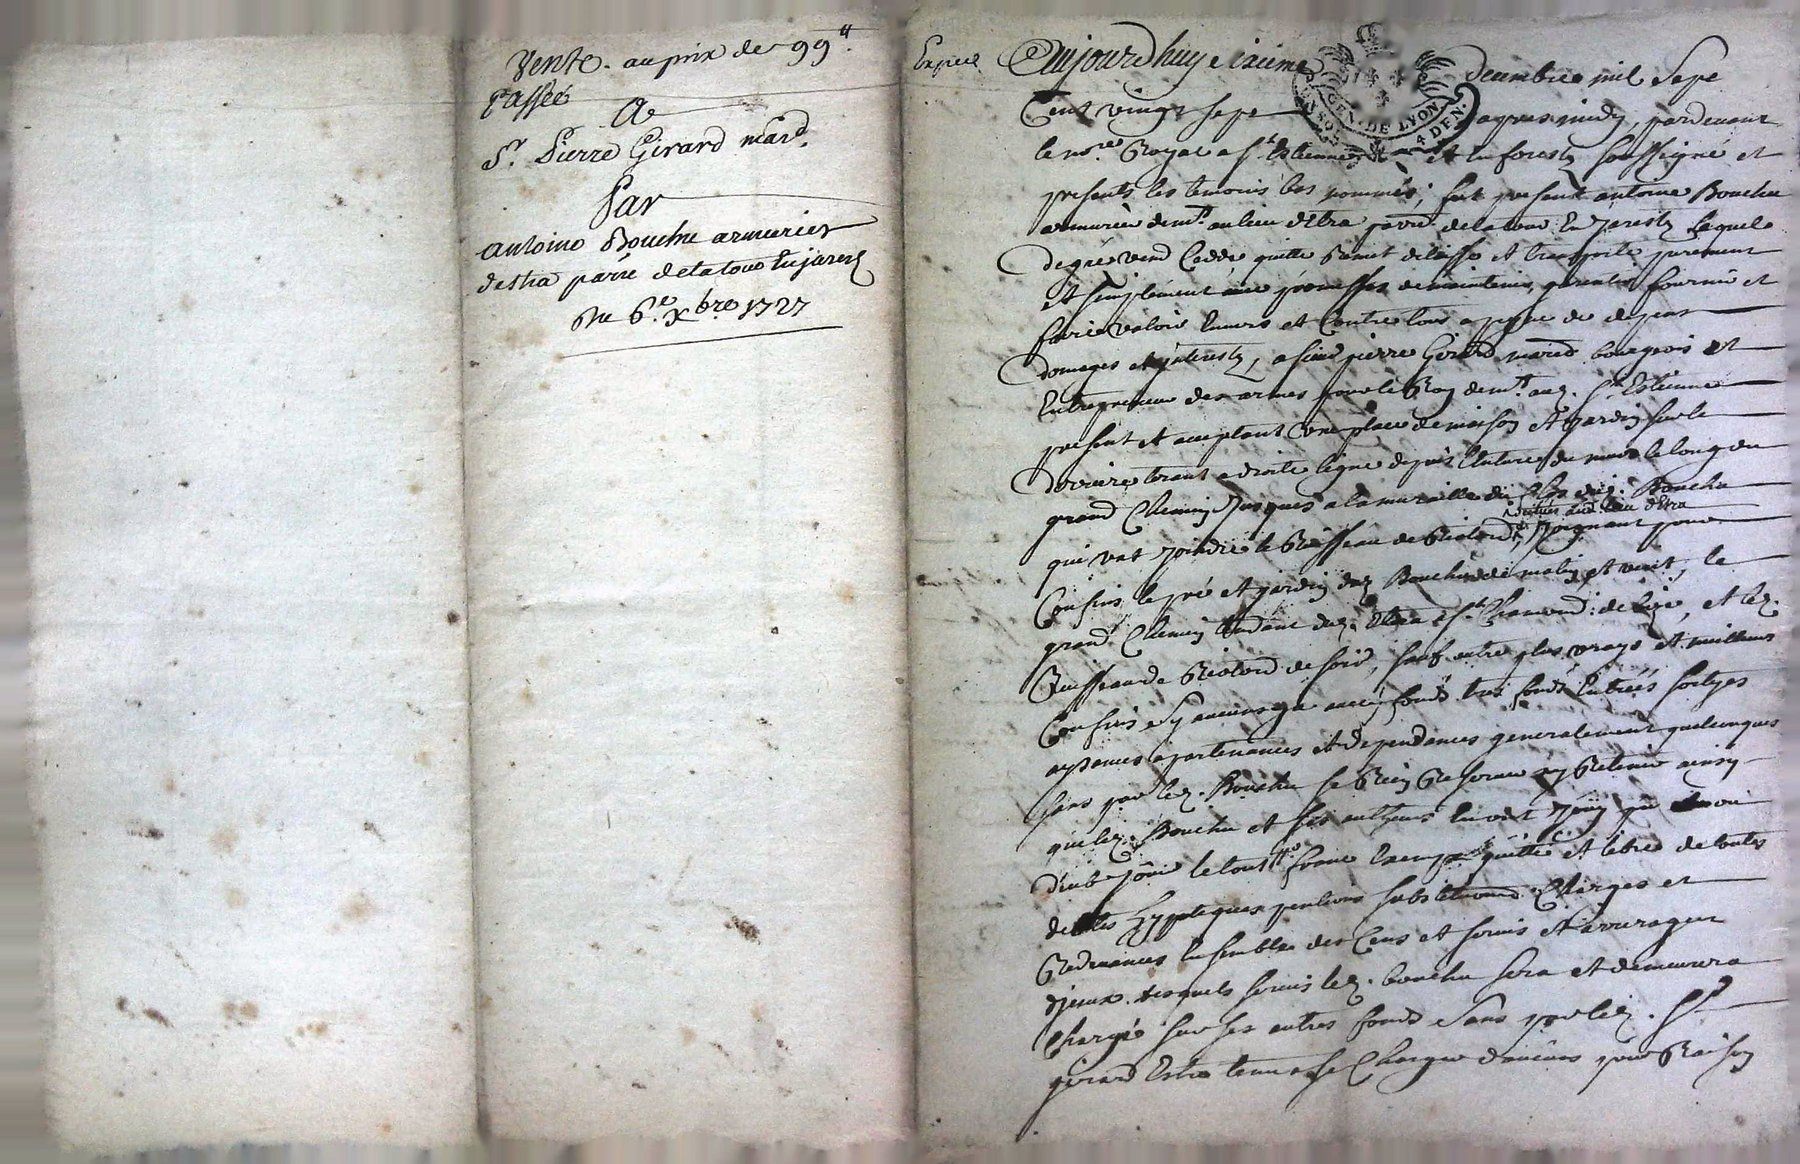 Vente. au prix de 99ᵗᵗ.
Passée
A
Sʳ. Pierre Girard marᵈ.
Par
antoine Bouchu armurier
destra parre de la tour En jarest
Du 6ᵉ. Xbre 1727
Aujourdhuy sixieme decembre mil Sept
GEN. DE LYON
4 DEN.
Cent vingt sept apres midy, pardevant
le noʳᵉ Royal a Sᵗ Estienne En forestz soussigné et
presents les temoins bas nommés; fut present antoine Bouchu
armurier demᵗ. au lieu detra parre de la tour En Jarestz Lequel
de gré vend Cedde quitte Remet delaisse et transporte purement
et simplement avec promesses de maintenir, garentir fournir et
faire valoir Envers et Contre tous a peyne de depens
domages et interestz, a sieur pierre Girard marchd bourgeois et
Entrepreneur des armes pour le Roy demᵗ. aud. Sᵗ Estienne
present et acceptant Une place de maison et jardin sur le
derriere tirant a droite ligne depuis du mur le long du
grand Chemin Jusques a la muraille du Clos dud. Bouchu
situés aud lieu detra
qui vat joindre le Ruisseau de Joignant pour
Confins le pré et jardin dud Bouchu de matin et vent, le
grand Chemin tendant dud. Etra a Sᵗ Chamond de bize, et led.
Ruisseau de de soir, sauf autres plus vrays et meilleurs
Confins sy aucuns y a avec fonds tres fonds Entrées sortyes
aysances apartenances et dependances generalement quelconques
sans par led. Bouchu se Rien Reserver ny Retenir ainsy
que led. Bouchu et ses autheurs En ont Jouy
Jouir le tout franc Exempt quitte et libre de toutes
dettes hypoteques pentions substitutions Charges et
Redevances Ensemble des Cens et servis et arrerages
diceux. desquels servis led. bouchu sera et demeurera
Chargé sur ses autres fonds Sans que led. Sʳ
girard Estre tenu a se Charger daucuns pour Raison